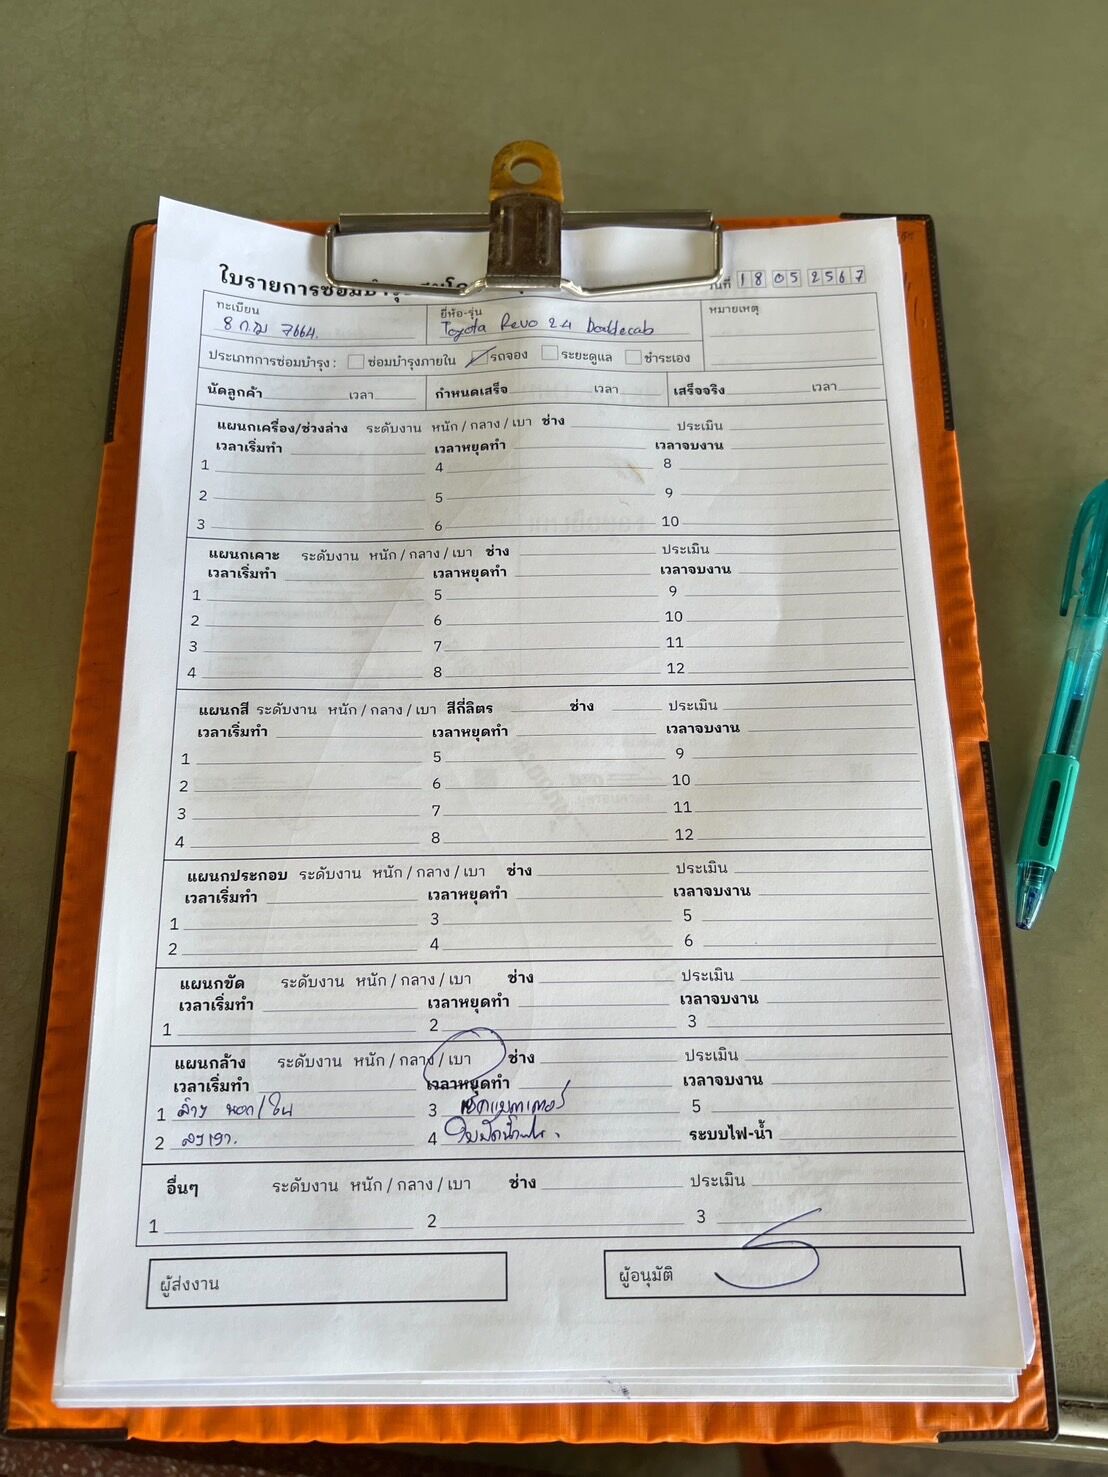 ใบรายการซ่อมบำรุง วันที่ 18 05 2567
ทะเบียน ยี่ห้อ-รุ่น หมายเหตุ
7664 Toyota Revo 2.4 Doublecab
ประเภทการซ่อมบำรุง : ซ่อมบำรุงภายใน รถจอง ระยะดูแล ชำระเอง
นัดลูกค้า เวลา กำหนดเสร็จ เวลา เสร็จจริง เวลา
แผนกเครื่อง/ช่วงล่าง ระดับงาน หนัก / กลาง / เบา ช่าง ประเมิน
เวลาเริ่มทำ เวลาหยุดทำ เวลาจบงาน
1 4 8
2 5 9
3 6 10
แผนกเคาะ ระดับงาน หนัก / กลาง / เบา ช่าง ประเมิน
เวลาเริ่มทำ เวลาหยุดทำ เวลาจบงาน
1 5 9
2 6 10
3 7 11
4 8 12
แผนกสี ระดับงาน หนัก / กลาง / เบา สีกี่ลิตร ช่าง ประเมิน
เวลาเริ่มทำ เวลาหยุดทำ เวลาจบงาน
1 5 9
2 6 10
3 7 11
4 8 12
แผนกประกอบ ระดับงาน หนัก / กลาง / เบา ช่าง ประเมิน
เวลาเริ่มทำ เวลาหยุดทำ เวลาจบงาน
1 3 5
2 4 6
แผนกขัด ระดับงาน หนัก / กลาง / เบา ช่าง ประเมิน
เวลาเริ่มทำ เวลาหยุดทำ เวลาจบงาน
1 2 3
แผนกล้าง ระดับงาน หนัก / กลาง / เบา ช่าง ประเมิน
เวลาเริ่มทำ เวลาหยุดทำ เวลาจบงาน
1 ล้าง นอก/ใน 3 เช็คแบตเตอรี่ 5
2 ลงเงา. 4 ระบบไฟ-น้ำ
อื่นๆ ระดับงาน หนัก / กลาง / เบา ช่าง ประเมิน
1 2 3
ผู้ส่งงาน ผู้อนุมัติ